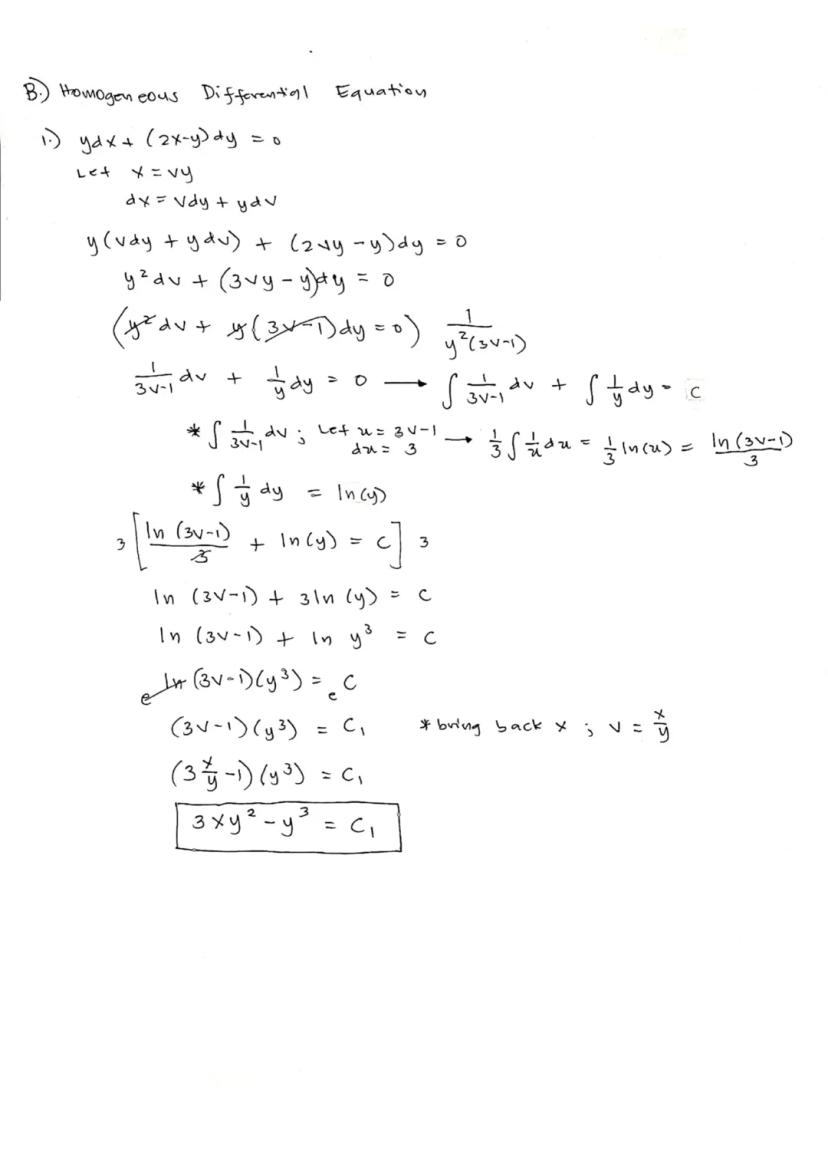 B.) Homogeneous Differential Equation
1.) ydx + (2x-y)dy = 0
Let x = vy
dx = vdy + ydv
y(vdy + ydv) + (2vy - y)dy = 0
y² dv + (3vy - y)dy = 0
(y² dv + y(3v-1)dy = 0) 1/(y²(3v-1))
1/(3v-1) dv + 1/y dy = 0 → ∫ 1/(3v-1) dv + ∫ 1/y dy = C
* ∫ 1/(3v-1) dv ; Let u = 3v-1 du = 3 → 1/3 ∫ 1/u du = 1/3 ln(u) = ln(3v-1)/3
* ∫ 1/y dy = ln(y)
3 [ ln(3v-1)/3 + ln(y) = C ] 3
ln (3v-1) + 3ln (y) = C
ln (3v-1) + ln y³ = C
e ln (3v-1)(y³) = e C
(3v-1)(y³) = C₁ * bring back x ; v = x/y
(3 x/y -1)(y³) = C₁
3xy² - y³ = C₁